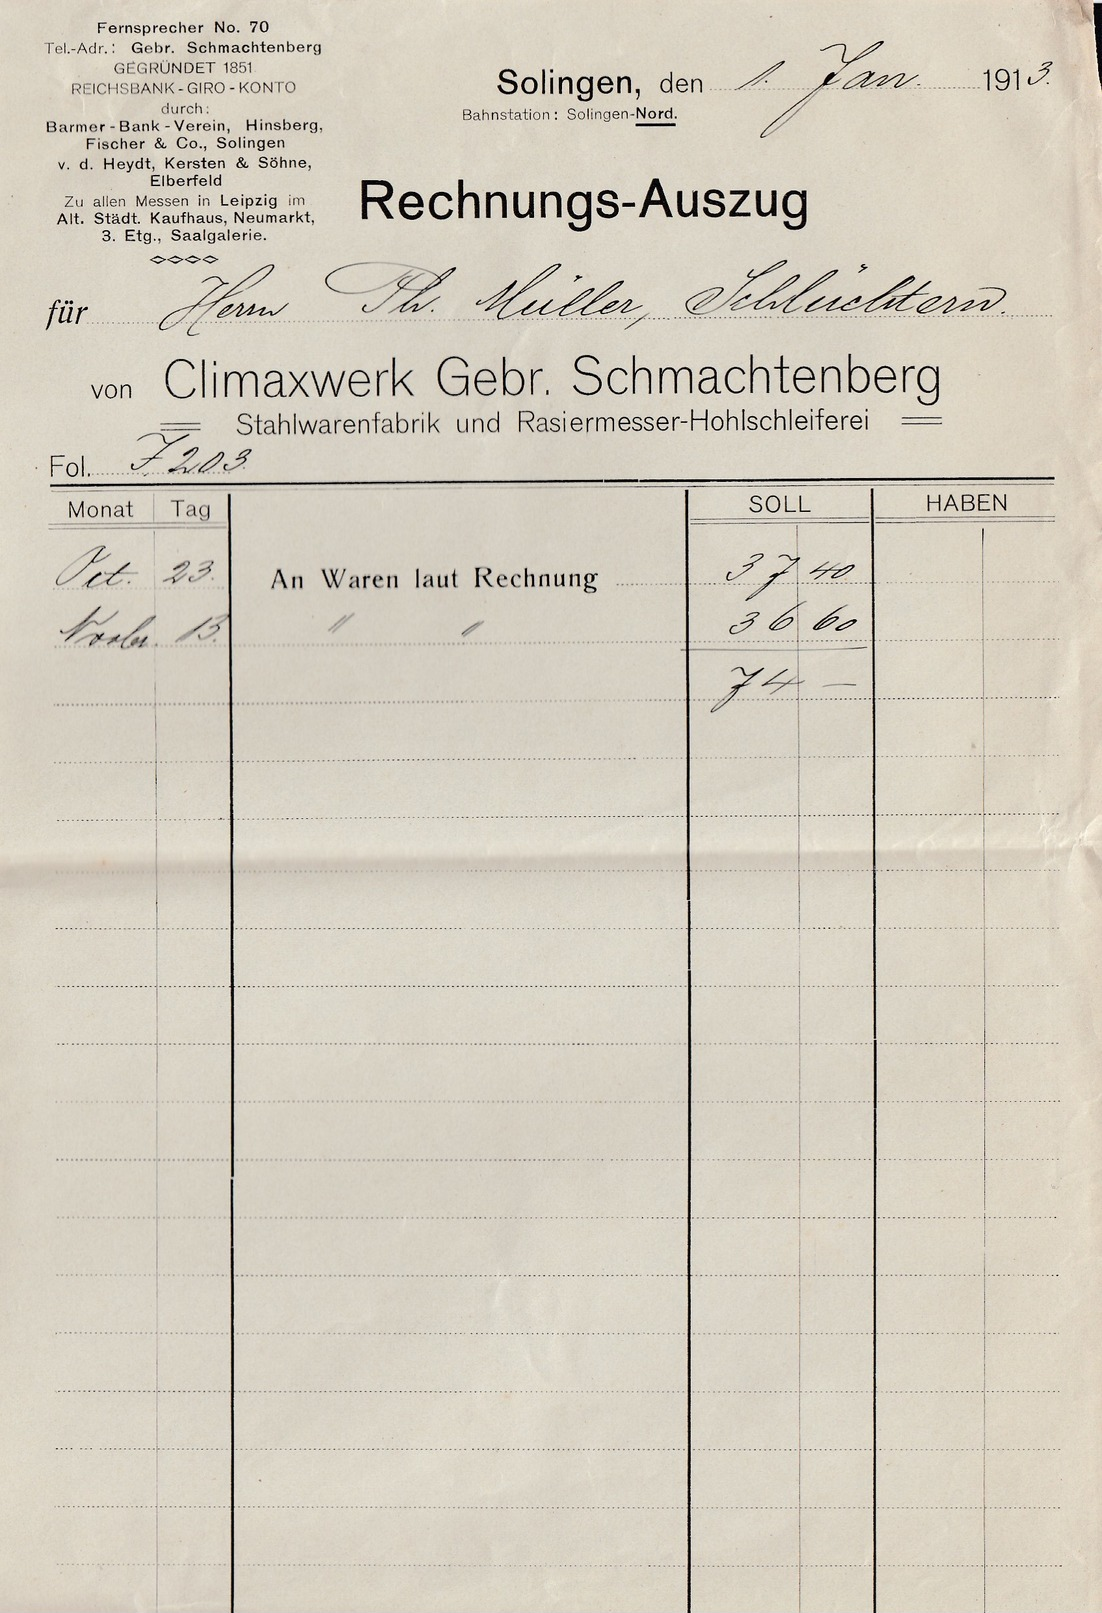 Fernsprecher No. 70
Tel.-Adr.: Gebr. Schmachtenberg
GEGRÜNDET 1851
REICHSBANK-GIRO-KONTO
durch:
Barmer-Bank-Verein, Hinsberg,
Fischer & Co., Solingen
v. d. Heydt, Kersten & Söhne,
Elberfeld
Zu allen Messen in Leipzig im
Alt. Städt. Kaufhaus, Neumarkt,
3. Etg., Saalgalerie.
Solingen, den 1. Jan. 1913.
Bahnstation: Solingen-Nord.
Rechnungs-Auszug
für Herrn Ph. Müller, Schlüchtern.
von Climaxwerk Gebr. Schmachtenberg
Stahlwarenfabrik und Rasiermesser-Hohlschleiferei
Fol. F 203
Monat Tag SOLL HABEN
Oct. 23. An Waren laut Rechnung 37 40
Novbr. 13. " " 36 60
74 —